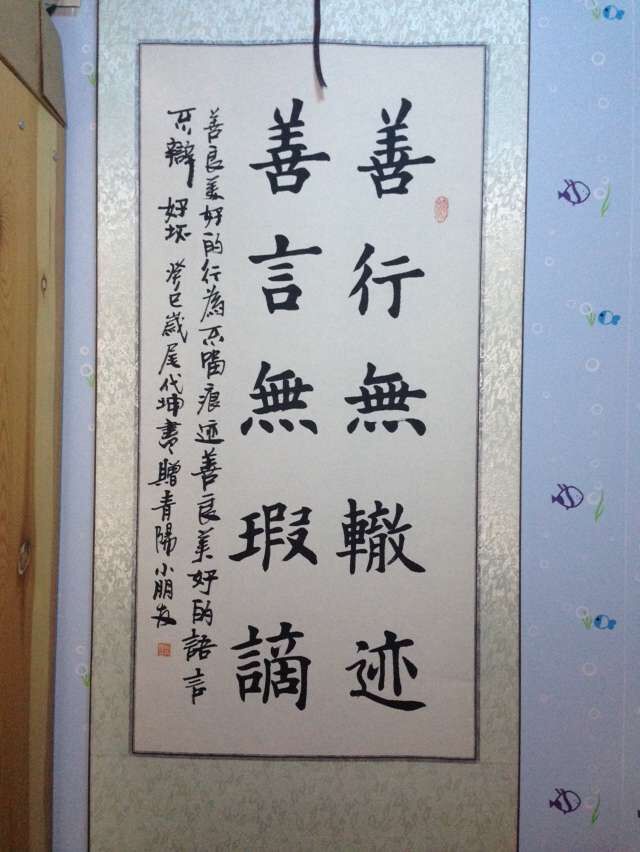 善行無轍迹
善言無瑕謫
善良美好的行為不留痕迹善良美好的語言
不辯好坏癸巳歲尾代坤書贈青陽小朋友